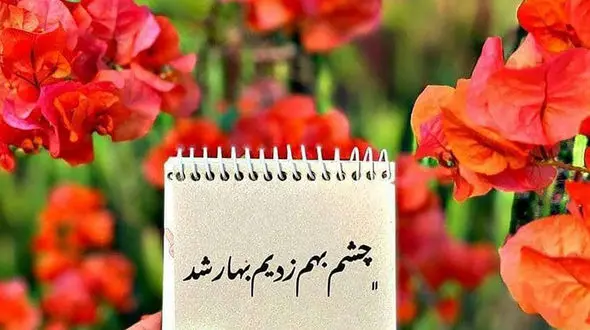 "چشم بهم زدیم بهار شد"